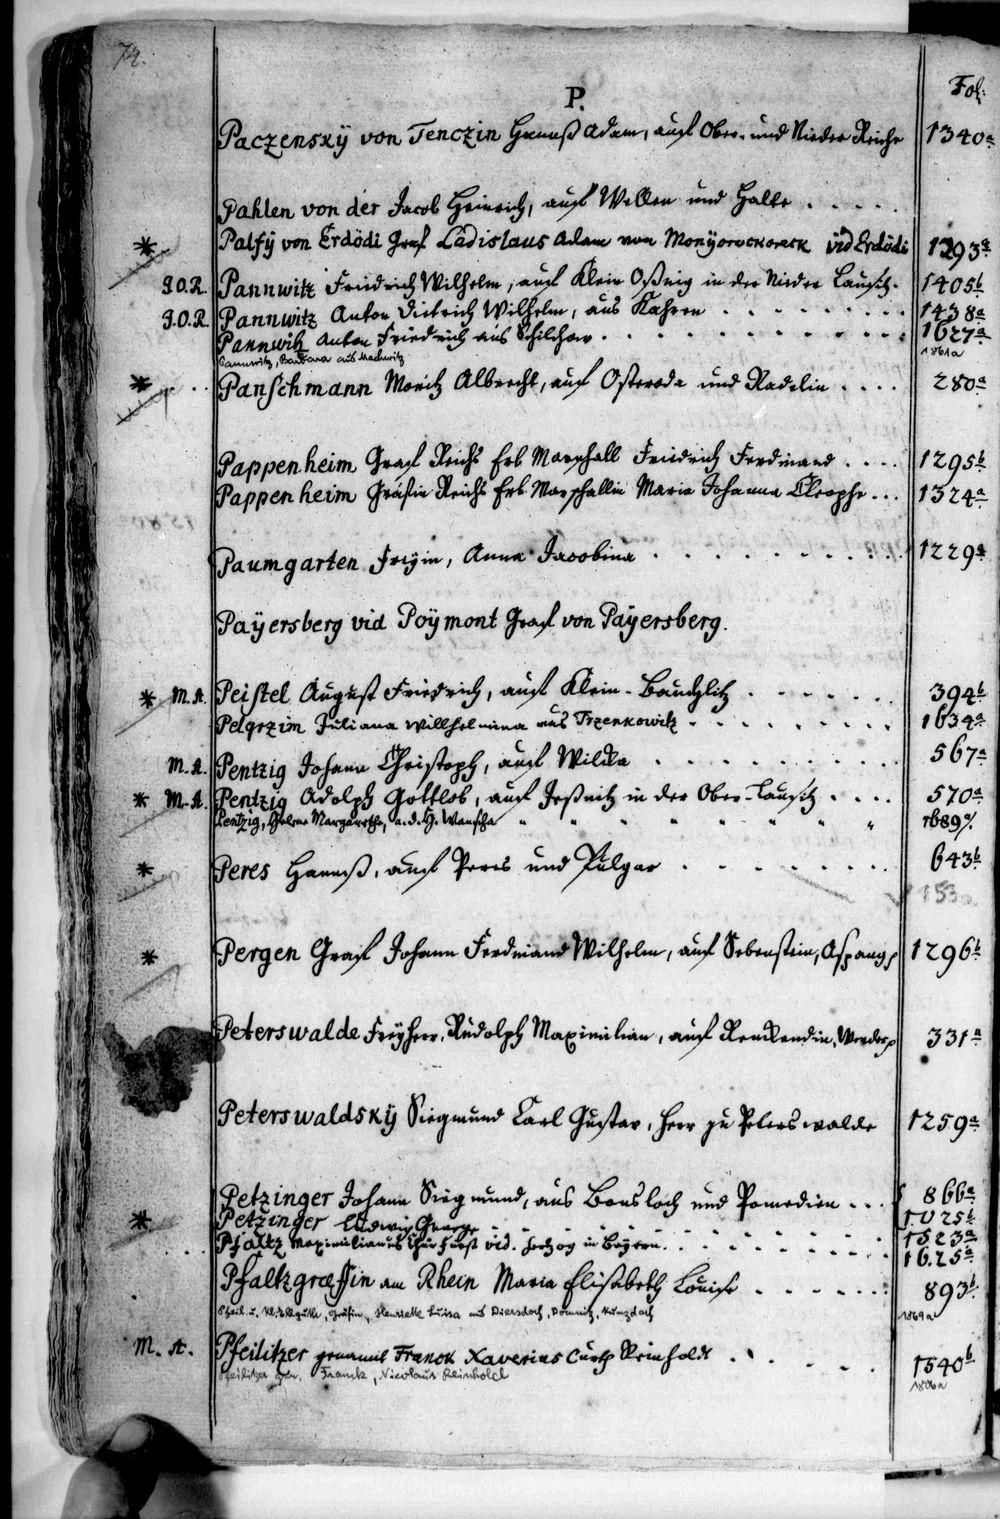 74.
P.
Fol:
Paczenskÿ von Tenczin Hannß Adam, auf Ober- und Nieder Reiche 1340a
Pahlen von der Jacob Heinrich, auf Wellen und Halle . . . . .
* Palfÿ von Erdödi Graf Ladislaus Adam von Monÿorockereck vid Erdödi 1293a
J.O.R. Pannwitz Friedrich Wilhelm, auf Klein Oßnig in der Nieder Lausitz. 1405b
J.O.R. Pannwitz Anton Dietrich Wilhelm, aus Kahren . . . . . . . 1438a
Pannwitz Anton Friedrich aus Schilchow . . . . . . . . 1627a
Pannwitz, Barbara aus Machwitz 1861a
* Panschmann Moritz Albrecht, auf Osteroda und Radelin . . . . 280a
Pappenheim Graf Reichs Erb Marschall Friedrich Ferdinand . . . . 1295b
Pappenheim Gräfin Reichs Erb Marschallin Maria Johanna Cleophe . . . 1324a
Paumgarten Freÿin, Anna Jacobina . . . . . . . . 1229a
Paÿersberg vid Poÿmont Graf von Paÿersberg.
* M.A. Peistel August Friedrich, auf Klein-Bauchlitz . . . . . . 394b
Pelgrzim Juliana Willhelmina aus Trzenkowitz . . . . . . . . 1634a
M.A. Pentzig Johann Christoph, auf Wilcka . . . . . . . . 567a
* M.A. Pentzig Adolph Gottlob, auf Jeßnitz in der Ober-Lausitz . . . . 570a
Pentzig, Helene Margarethe, a. d. H. Wanscha " " " " " " " " 1689
* Peres Hannß, auf Peres und Pulgar . . . . . . . . 643b
153a
* Pergen Graf Johann Ferdinand Wilhelm, auf Sebenstein, Aspang 1296b
Peterswalde Freÿherr, Rudolph Maximilian, auf Renkendin, Werder 331a
Peterswaldskÿ Siegmund Carl Gustav, Herr zu Peterswalde 1259a
Petzinger Johann Siegmund, aus Bonsloch und Pomedien . . . 866a
* Petzinger Ludwig George . . . . . . . . 1025b
Pfaltz Maximilianus Churfürst vid. Hertzog in Bayern . . . . . . . 1523a
1625a
Pfaltzgræffin am Rhein Maria Elisabeth Louise . . . . . . 893b
Gräfin, Henriette Luisa aus Diersdorf, Kunzdorf 1869a
M. A. Pfeilitzer genannt Franck Xaverius Curth Reinholdt . . . . . 1540b
Pfeilitzer gen. Franck, Nicolaus Reinhold 1806a